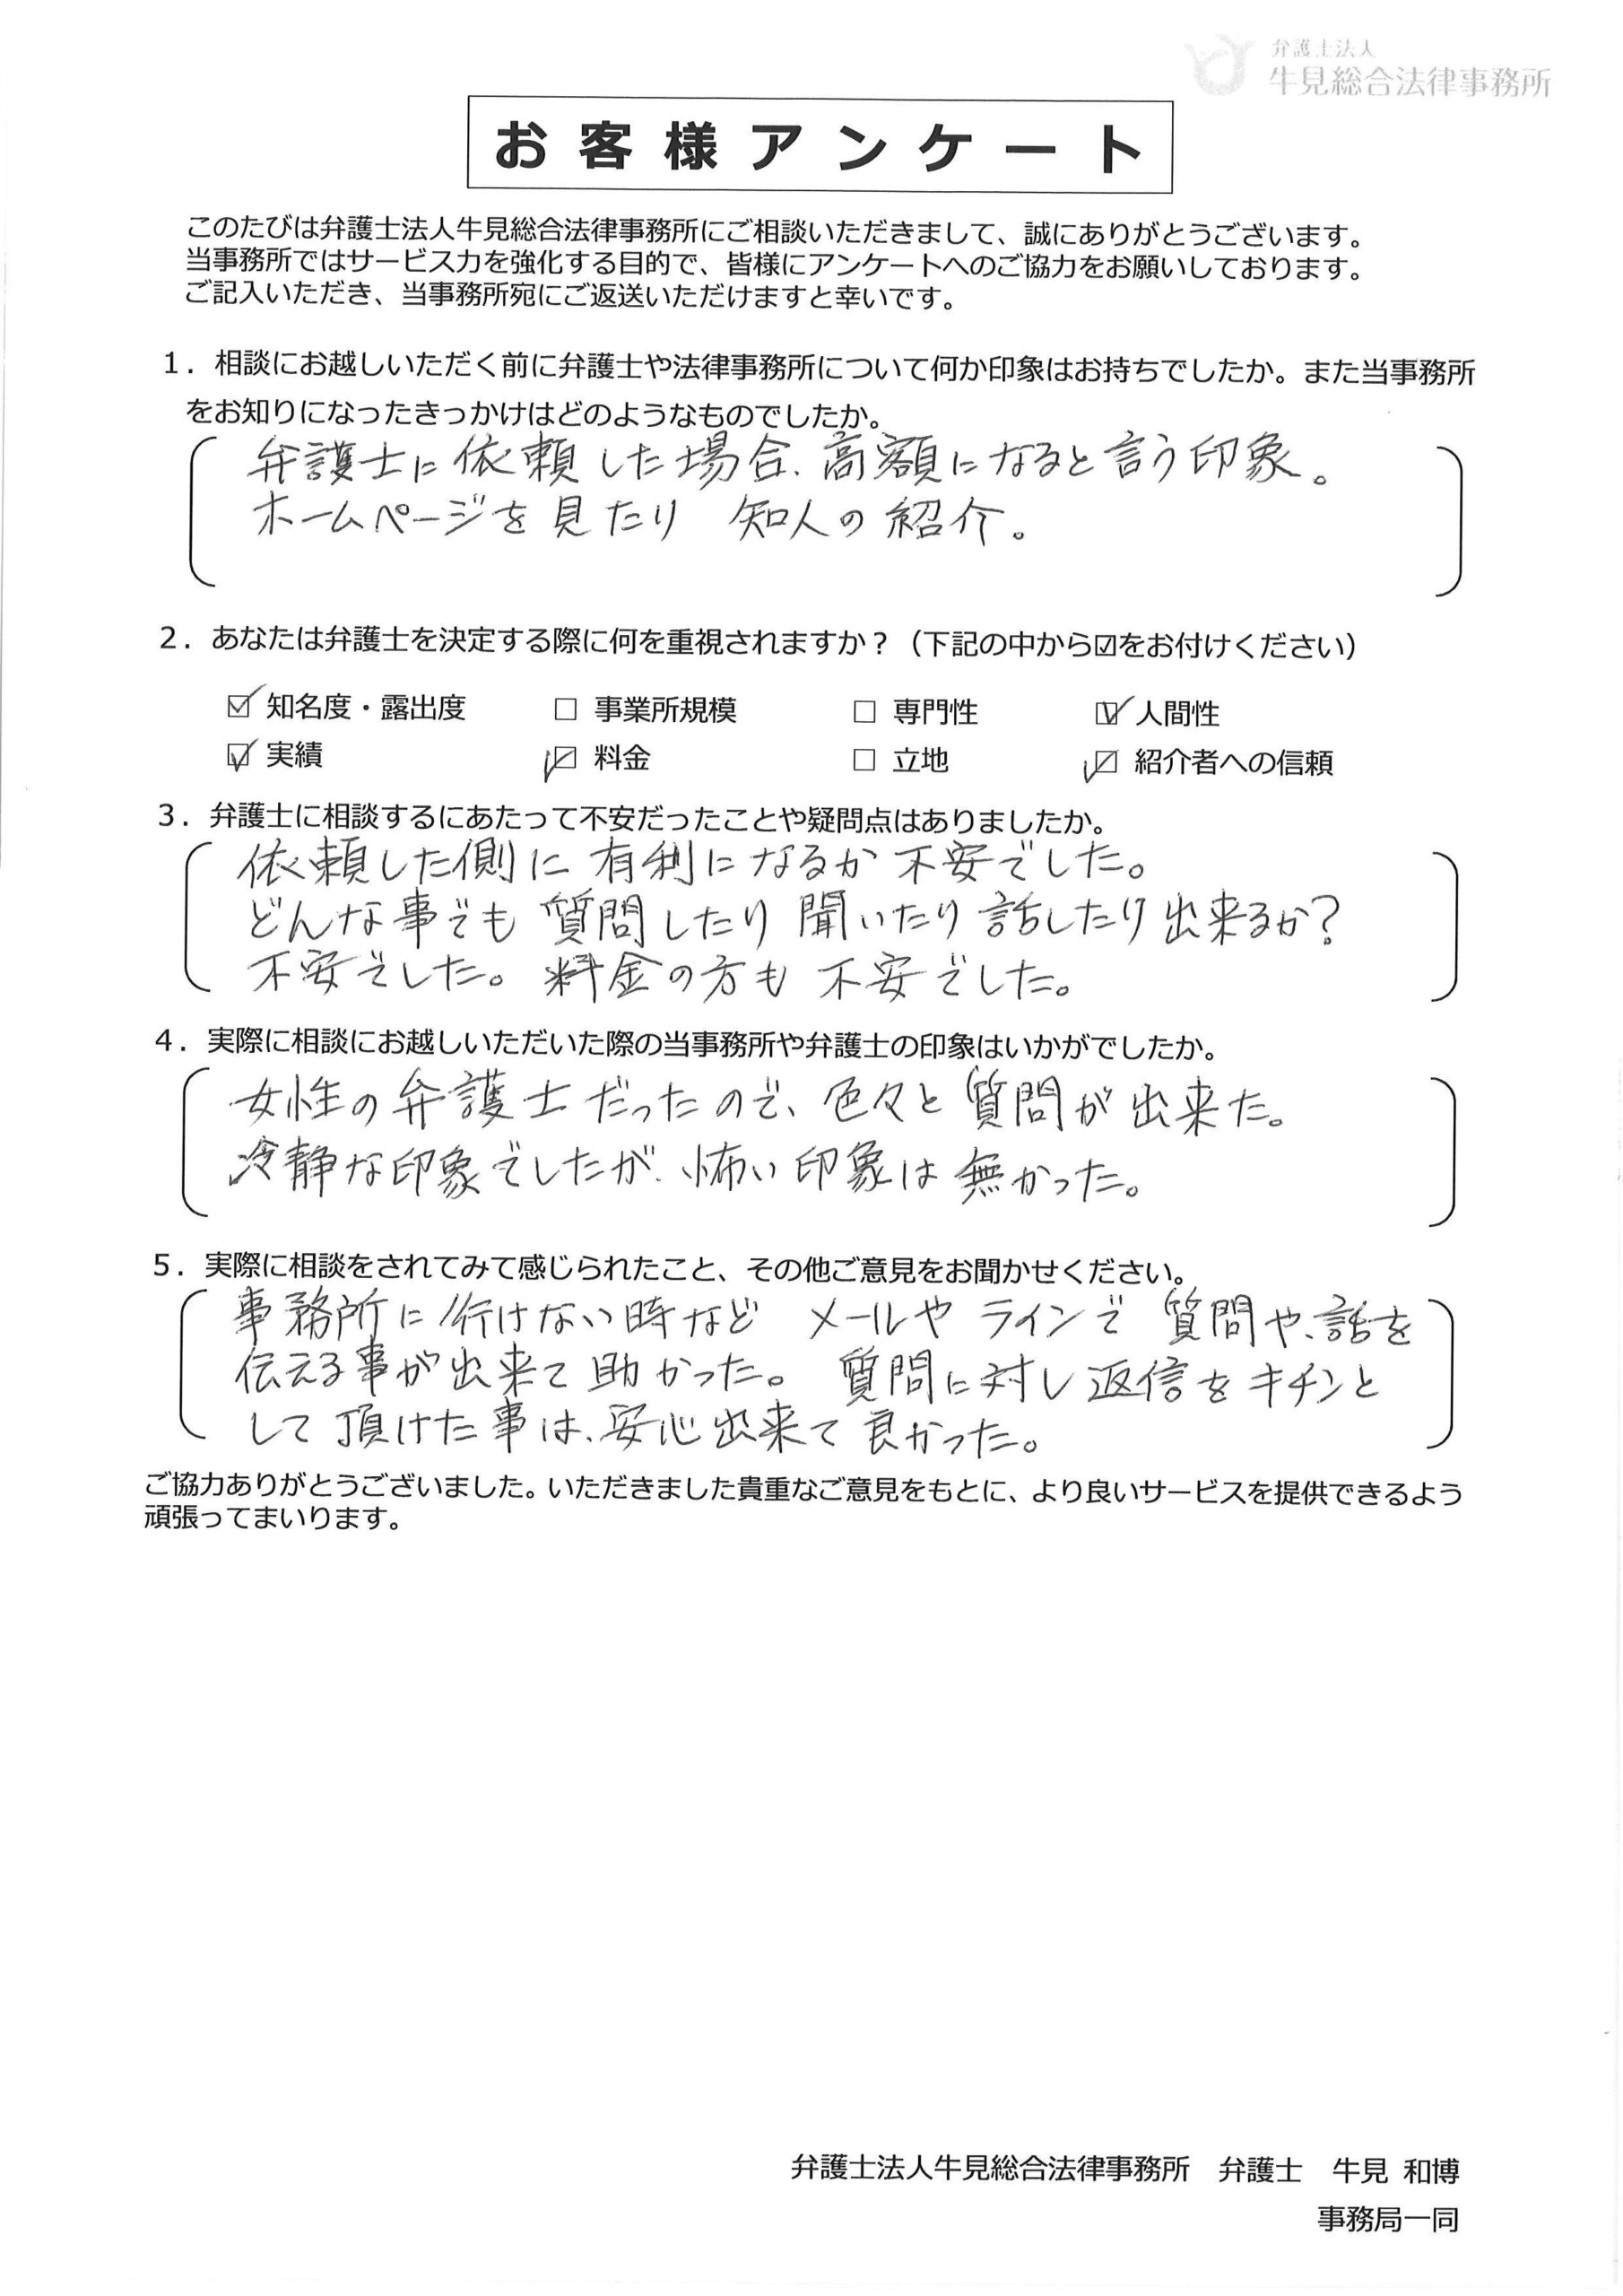 弁護士法人
牛見総合法律事務所
お客様アンケート
このたびは弁護士法人牛見総合法律事務所にご相談いただきまして、誠にありがとうございます。
当事務所ではサービス力を強化する目的で、皆様にアンケートへのご協力をお願いしております。
ご記入いただき、当事務所宛にご返送いただけますと幸いです。
1．相談にお越しいただく前に弁護士や法律事務所について何か印象はお持ちでしたか。また当事務所
をお知りになったきっかけはどのようなものでしたか。
弁護士に依頼した場合、高額になると言う印象。
ホームページを見たり 知人の紹介。
2．あなたは弁護士を決定する際に何を重視されますか？（下記の中から☑をお付けください）
☑ 知名度・露出度 □ 事業所規模 □ 専門性 ☑ 人間性
☑ 実績 ☑ 料金 □ 立地 ☑ 紹介者への信頼
3．弁護士に相談するにあたって不安だったことや疑問点はありましたか。
依頼した側に有利になるか不安でした。
どんな事でも質問したり聞いたり話したり出来るか？
不安でした。料金の方も不安でした。
4．実際に相談にお越しいただいた際の当事務所や弁護士の印象はいかがでしたか。
女性の弁護士だったので、色々と質問が出来た。
冷静な印象でしたが、怖い印象は無かった。
5．実際に相談をされてみて感じられたこと、その他ご意見をお聞かせください。
事務所に行けない時など メールやラインで質問や、話を
伝える事が出来て助かった。質問に対し返信をキチンと
して頂けた事は、安心出来て良かった。
ご協力ありがとうございました。いただきました貴重なご意見をもとに、より良いサービスを提供できるよう
頑張ってまいります。
弁護士法人牛見総合法律事務所 弁護士 牛見 和博
事務局一同